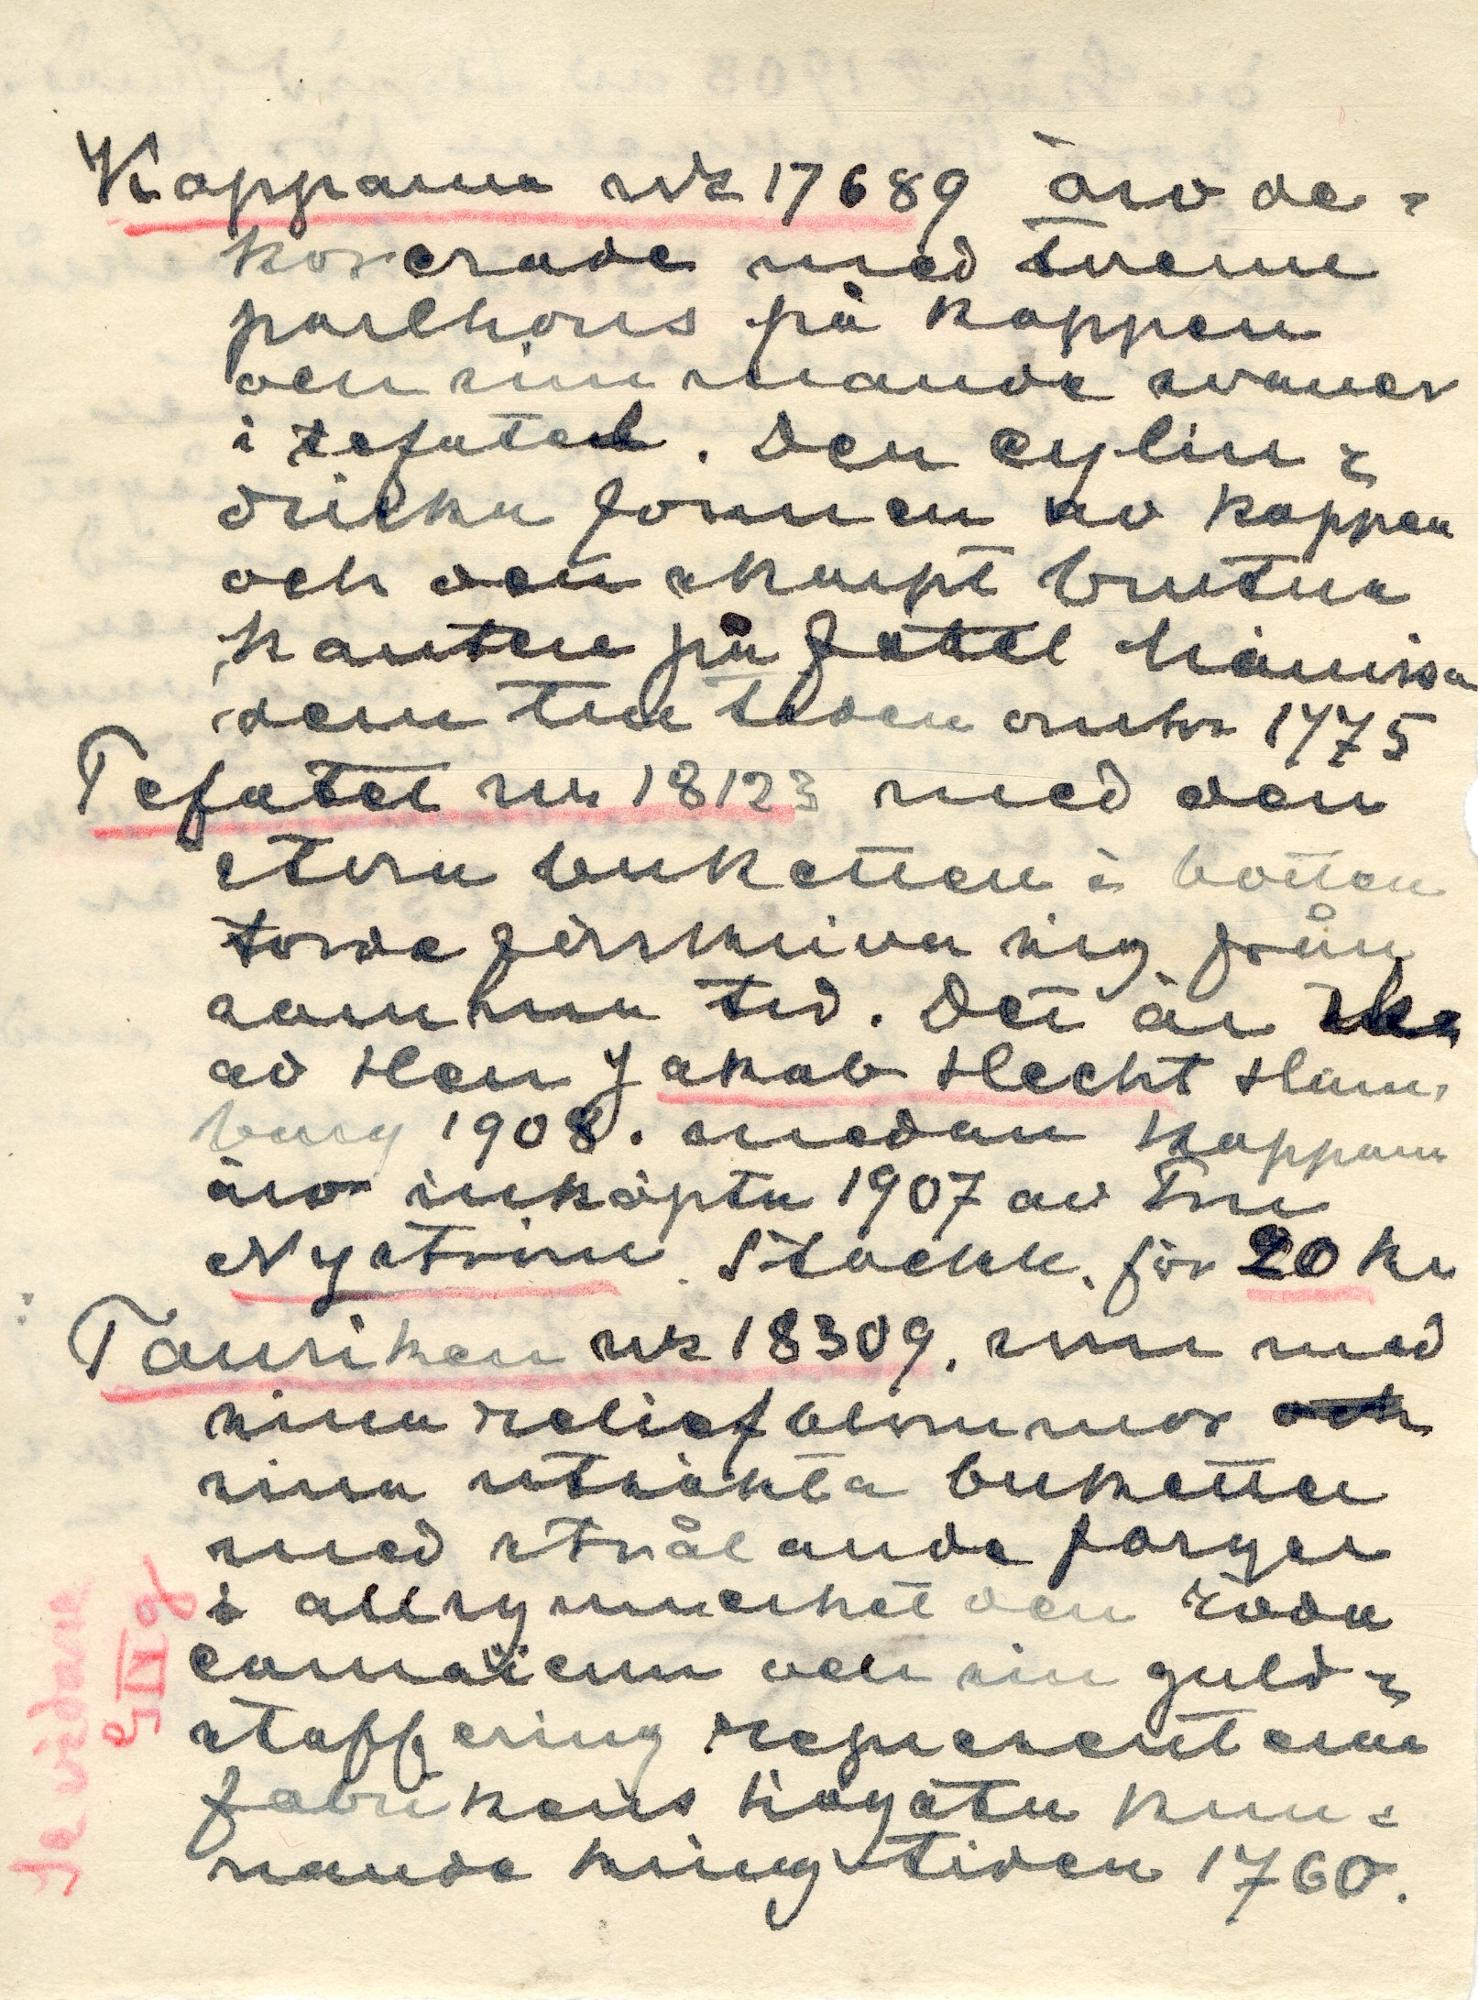 Kopparna nr 17689 äro de-
korerade med tvenne
parlhöns på koppen
och simmande svaner
i tefatet. Den cylin-
driska formen av koppen
och den skarpt brutna
kanten på fatet hänvisa
dem till tiden omkr 1775
Tefatet nr 18123 med den
stora buketten i botten
torde förskriva sig från
samma tid. Det är
av Herr Jakob Hecht Ham-
burg 1908. medan kopparna
äro inköpta 1907 av Fru
Nyström Stockh. för 20 kr
Talriken nr 18309. som med
sina reliefblommor och
sina utsökta buketter
med strålande färger
i allsynnerhet den röda
camaieun och sin guld-
staffering representerar
fabrikens högsta kun-
nande kring tiden 1760.
Se vidare